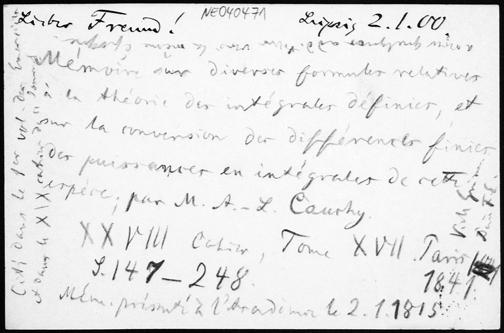 NE040471
Lieber Freund! Leipzig 2.1.00.
Mémoire sur diverses formules relatives
à la théorie des intégrales définies, et
sur la conversion des différences finies
des puissances en intégrales de cette
espèce; par M. A.-L. Cauchy.
XXVIII Cahier, Tome XVII. Paris
S. 147–248. 1841
Mém. présenté à l'Académie le 2.1.1815
Cité dans le 1er vol. des
et dans le XIX cahier
Viele
Dein F. E.